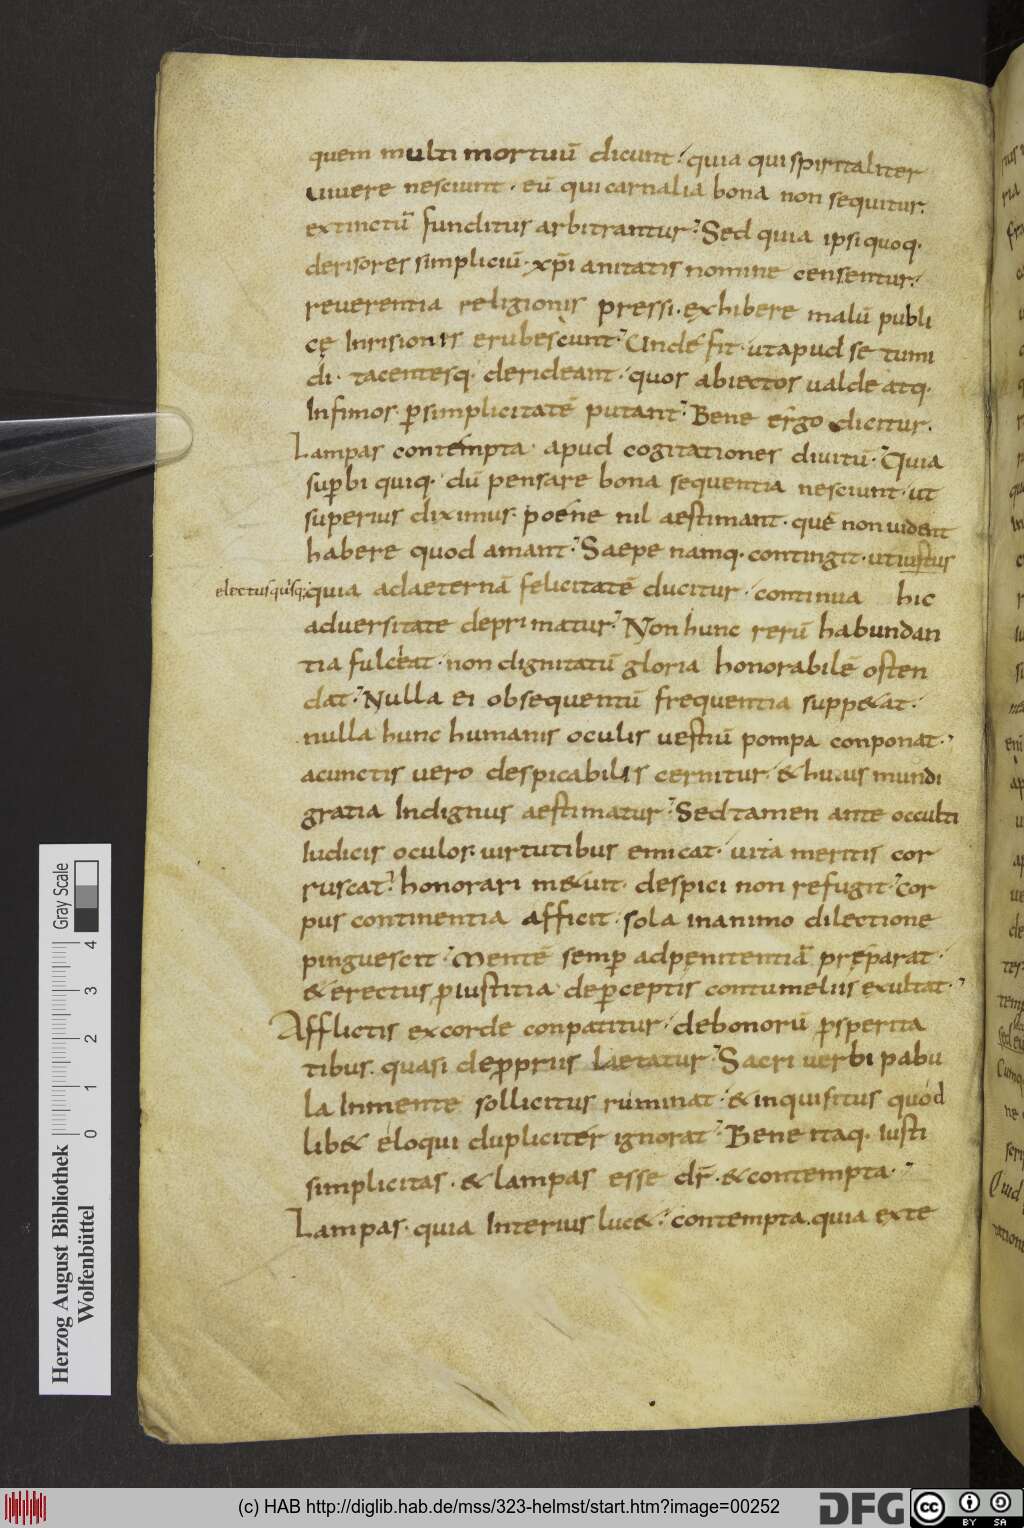 quem multi mortuū dicunt· quia qui spiritaliter
uiuere nesciunt· eū qui carnalia bona non sequitur·
extinctū funditus arbitrantur· Sed quia ipsi quoq·
derisores simpliciū· xp̄ianitatis nomine censentur·
reuerentia religionis pressi· exhibere malū publi
cę Inrisionis erubescunt· Unde fit· ut apud se tumi
di· tacentesq· derideant· quos abiectos ualde atq·
Infimos· p̱ simplicitatē putant· Bene ergo dicitur·
Lampas contempta· apud cogitationes diuitū· Quia
sup̱bi quiq· dū pensare bona sequentia nesciunt· ut
superius diximus· poene nil aestimant· quē non uident
habere quod amant· Saepe namq· contingit· ut iustus
electus quisq; quia ad aeternā felicitatē ducitur· continua hic
aduersitate deprimatur· Non hunc rerū habundan
tia fulceat· non dignitatū gloria honorabilē osten
dat· Nulla ei obsequentū frequentia suppe&at·
nulla hunc humanis oculis uestiū pompa conponat·
a cunctis uero despicabilis cernitur· & huius mundi
gratia Indignus aestimatur· Sed tamen ante occulti
Iudicis oculos· uirtutibus emicat· uita meritis cor
ruscat· honorari m&uit· despici non refugit· Cor
pus continentia afficit· sola in animo dilectione
pinguescit· Mentē semp̱ ad penitentiā pręparat·
& erectus p̱ iustitia· de p̱ceptis contumeliis exultat·
Afflictis ex corde conpatitur· de bonorū p̱sperita
tibus· quasi de p̱priis laetatur· Sacri uerbi pabu
la In mente sollicitus ruminat· & inquisitus quod
lib& eloqui dupliciter ignorat· Bene itaq· Iusti
simplicitas· & lampas esse dr̄· & contempta·
Lampas· quia Interius luc&· contempta· quia exte
Herzog August Bibliothek
Wolfenbüttel
0 1 2 3 4
Gray Scale
(c) HAB http://diglib.hab.de/mss/323-helmst/start.htm?image=00252
DFG
cc BY SA